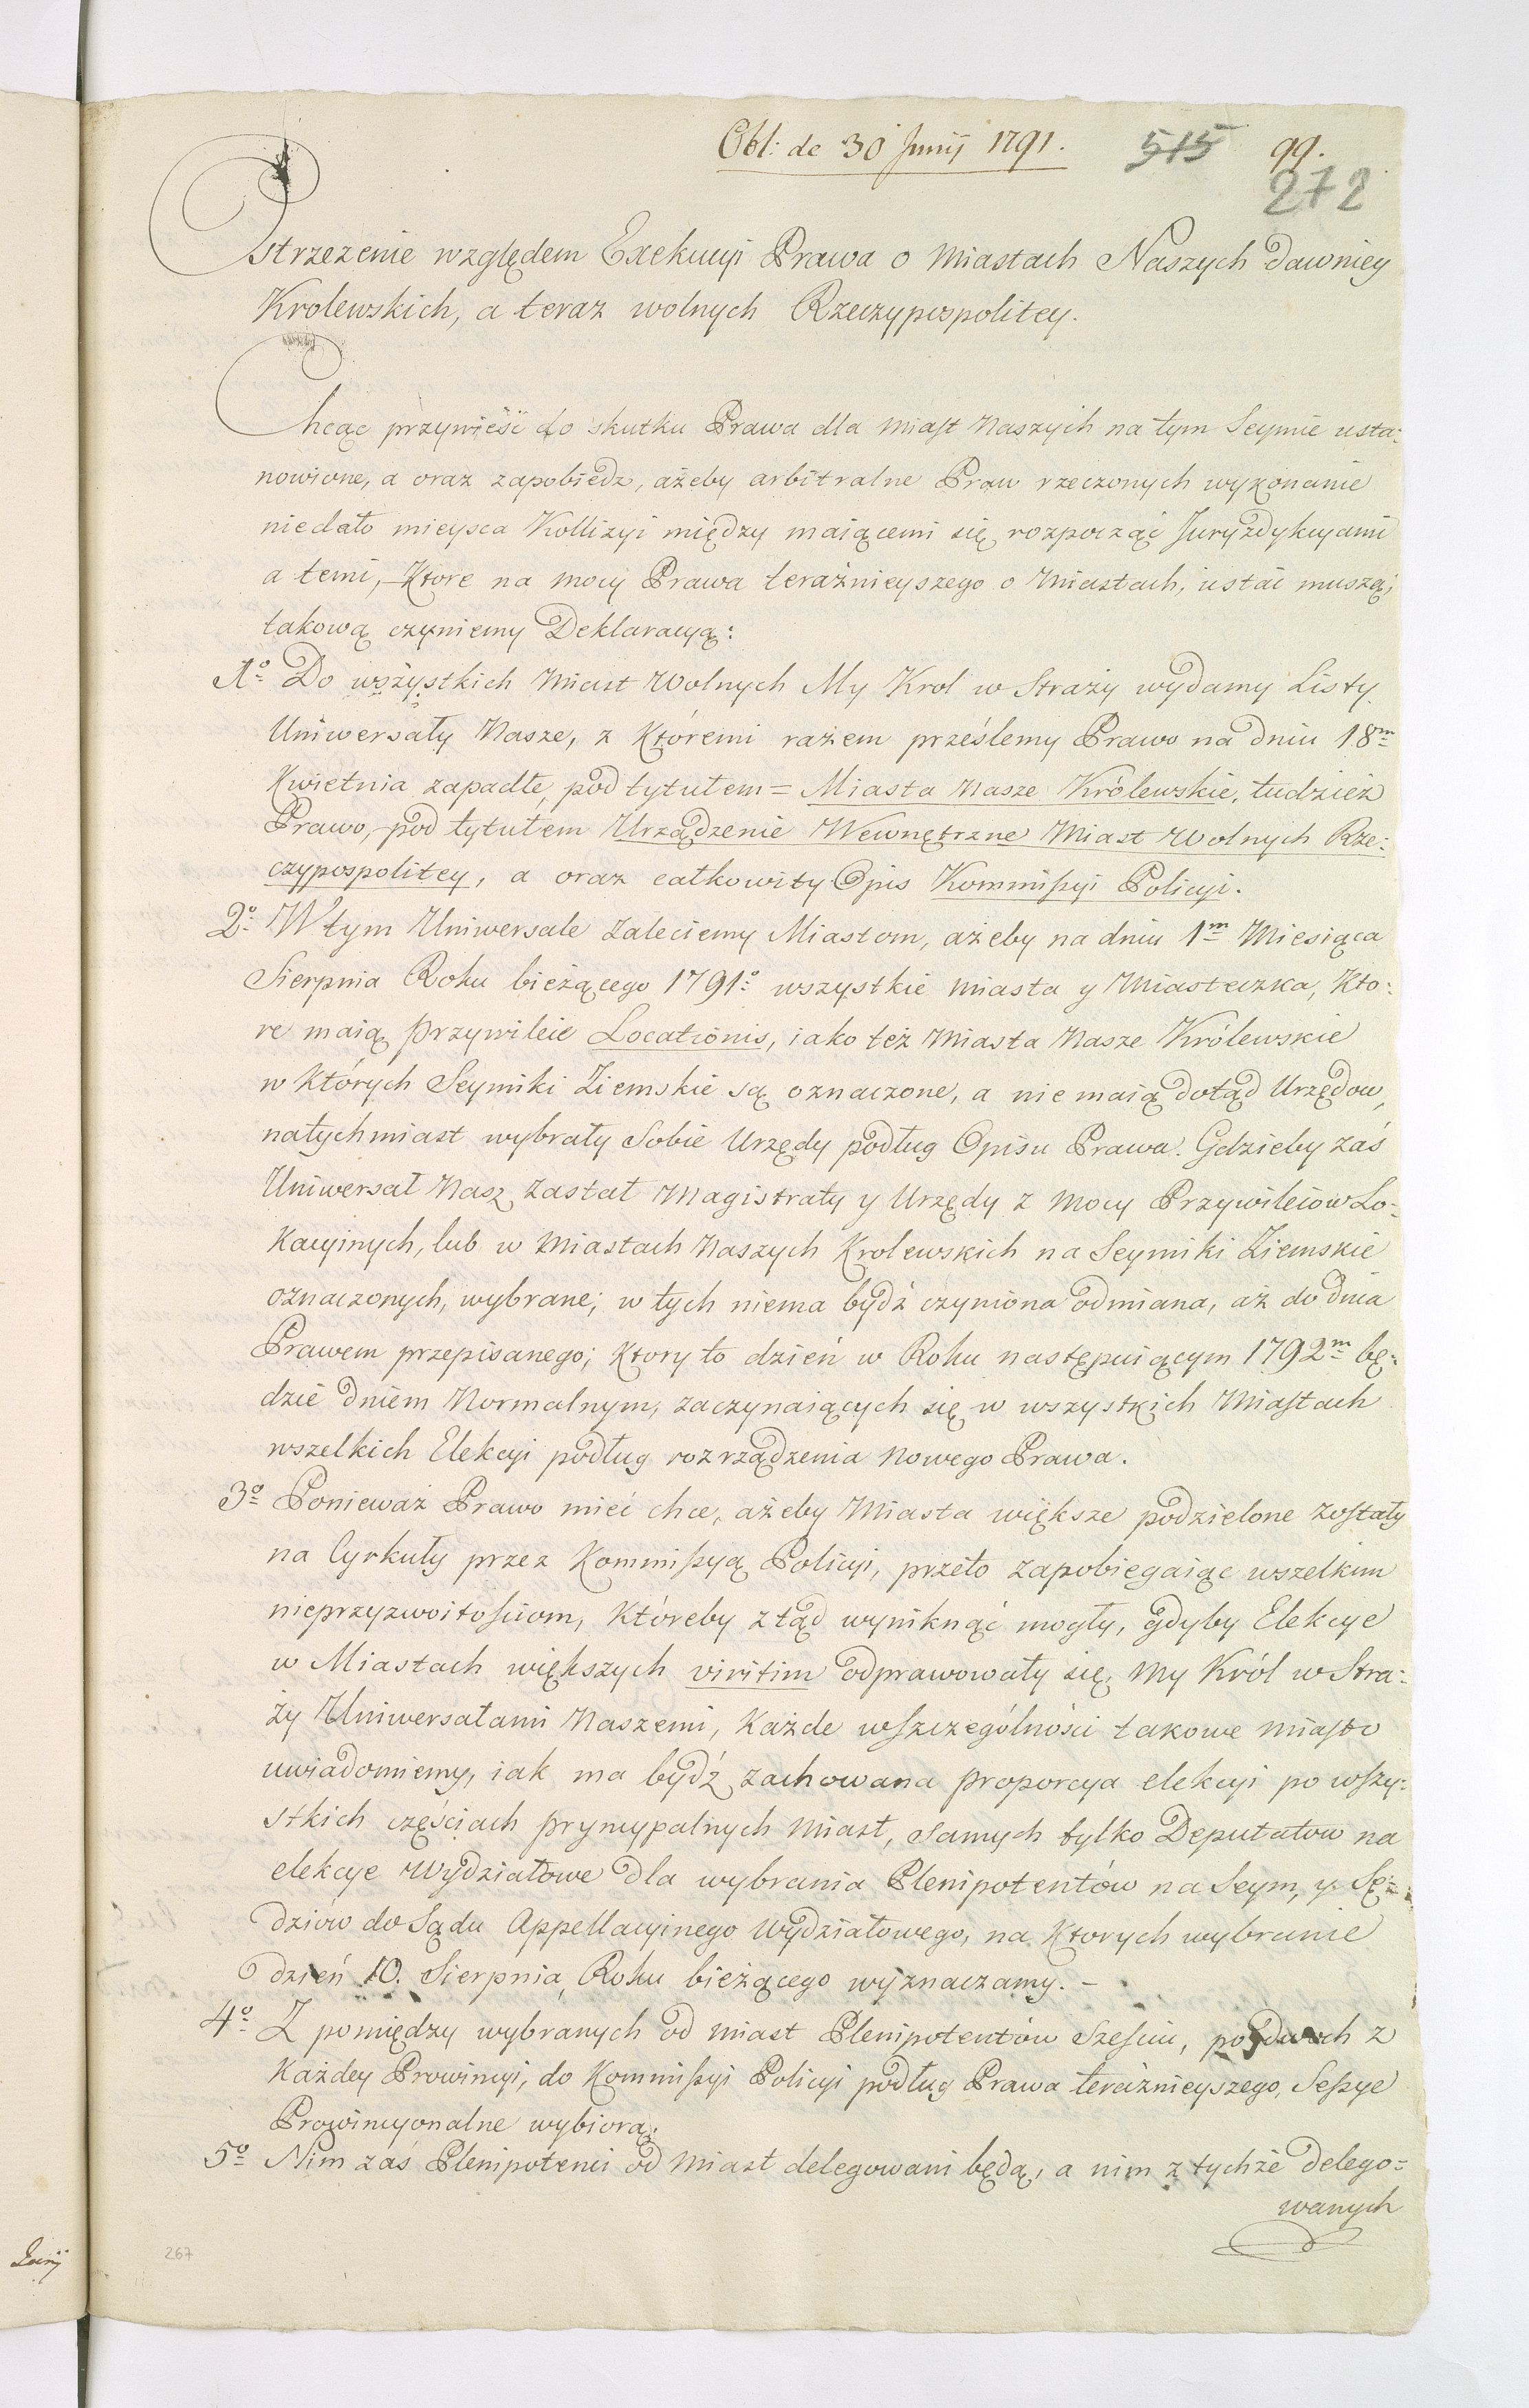 Obl: de 30 Junij 1791.
515 99.
272
Ostrzezenie względem Exekucyi Prawa o Miastach Naszych dawniey
Krolewskich, a teraz wolnych Rzeczypospolitey.
Chcąc przywieśź do skutku Prawa dla Miast Naszych na tym Seymie usta-
nowione, a oraz zapobiedz, ażeby arbitralne Praw rzeczonych wykonanie
niedało mieysca Kollizyi między maiącemi się rozpocząć Juryzdykcyami
a temi, Ktore na mocy Prawa teraźnieyszego o Miastach, ustać muszą;
takową czyniemy Deklaracyą:
1º Do wszystkich Miast Wolnych My Krol w Straży wydamy Listy
Uniwersały Nasze, z Któremi rażem prześlemy Prawo na dniu 18m
Kwietnia zapadłe, pod tytułem = Miasta Nasze Królewskie, tudzież
Prawo, pod tytułem Urządzenie Wewnętrzne Miast Wolnych Rze-
czypospolitey, a oraz całkowity Opis Kommissyi Policyi.
2º W tym Uniwersale zaleciemy Miastom, ażeby na dniu 1m Miesiąca
Sierpnia Roku bieżącego 1791º wszystkie Miasta y Miasteczka, Kto-
re maią Przywileie Locationis, iako też Miasta Nasze Królewskie
w Których Seymiki Ziemskie są oznaczone, a nie maią dotąd Urzędow,
natychmiast wybrały Sobie Urzędy podług Opisu Prawa. Gdzieby zaś
Uniwersał Nasz zastał Magistraty y Urzędy z Mocy Przywileiow Lo-
Kacyinych, lub w Miastach Naszych Krolewskich na Seymiki Ziemskie
oznaczonych, wybrane; w tych niema bydź czyniona odmiana, aż do dnia
Prawem przepisanego; Ktory to dzień w Roku następuiącym 1792m bę-
dzie dniem Normalnym, zaczynaiących się w wszystkich Miastach
wszelkich Elekcyi podług rozrządzenia Nowego Prawa.
3º Ponieważ Prawo mieć chce, ażeby Miasta większe podzielone zostały
na Cyrkuły przez Kommissyą Policyi, przeto zapobiegaiąc wszelkim
nieprzyzwoitościom, któreby ztąd wyniknąć mogły, gdyby Elekcye
w Miastach większych viritim odprawowały się, My Król w Stra-
ży Uniwersałami Naszemi, każde wszczególności takowe Miasto
uwiadomiemy, iak ma bydź zachowana proporcya elekcyi po wszy-
stkich częściach pryncypalnych Miast, samych tylko Deputatow na
elekcye Wydziałowe dla wybrania Plenipotentów na Seym, y Sę-
dziów do Sądu Appellacyinego Wydziałowego, na Ktorych wybranie
dzień 10. Sierpnia, Roku bieżącego wyznaczamy. -
4º Z pomiędzy wybranych od Miast Plenipotentów Sześciu, po dwoch z
Każdey Prowincyi, do Kommissyi Policyi podług Prawa teraźnieyszego, Sessye
Prowincyonalne wybiorą.
5º Nim zaś Plenipotenci od Miast delegowani będą, a nim z tychże delego-
wanych
267
Junij